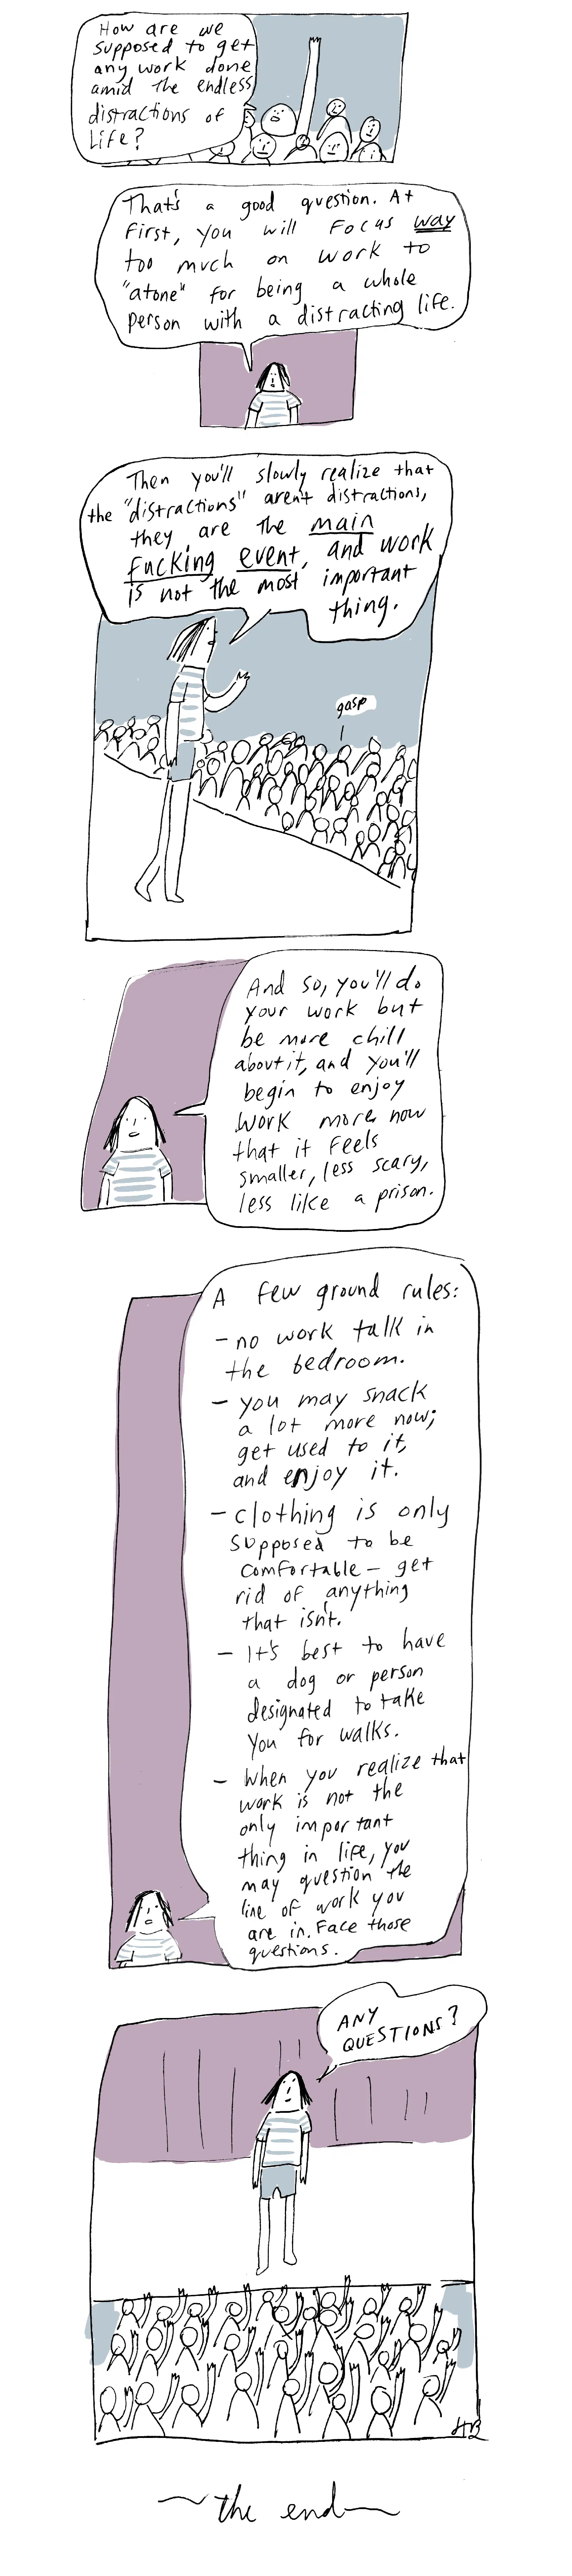 How are we
supposed to get
any work done
amid the endless
distractions of
life?
That's a good question. At
first, you will focus way
too much on work to
"atone" for being a whole
person with a distracting life.
Then you'll slowly realize that
the "distractions" aren't distractions,
they are the main
fucking event, and work
is not the most important
thing.
gasp
And so, you'll do
your work but
be more chill
about it, and you'll
begin to enjoy
work more now
that it feels
smaller, less scary,
less like a prison.
A few ground rules:
- no work talk in
the bedroom.
- you may snack
a lot more now;
get used to it,
and enjoy it.
- clothing is only
supposed to be
comfortable - get
rid of anything
that isn't.
- It's best to have
a dog or person
designated to take
you for walks.
- When you realize that
work is not the
only important
thing in life, you
may question the
line of work you
are in. Face those
questions.
ANY
QUESTIONS?
HB
~the end~